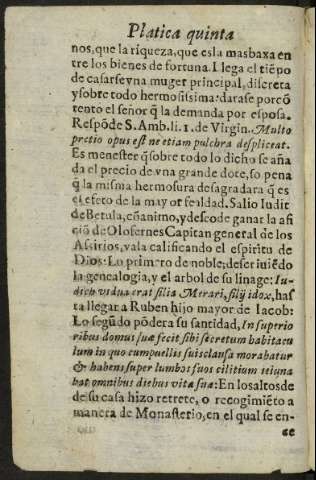 Platica quinta
nos, que la riqueza, que esla masbaxa en
tre los bienes de fortuna. Llega el tiẽpo
de casarse vna muger principal, discreta
y sobre todo hermosissima: darase porcõ
tento el señor q̃ la demanda por esposa.
Respõde S. Amb. li. 1. de Virgin. Multo
pretio opus est ne etiam pulchra despliceat.
Es menester q̃ sobre todo lo dicho se aña
da el precio de vna grande dote, so pena
q̃ la misma hermosura desagradara q̃ es
el efeto de la mayor fealdad. Salio Iudit
de Betula, cõ animo, y desco de ganar la afi
ciõ de Olofernes Capitan general de los
Assirios, vala calificando el espiritu de
Dios: Lo primero de noble; deseriuiẽdo
la genealogia, y el arbol de su linage: Iu-
dich vidua erat filia Merari, filij idox, has
ta llegar a Ruben hijo mayor de Iacob:
Lo segũdo põdera su santidad, In superio
ribus domus suæ fecit sibi secretum habitacu
lum in quo cumpuellis suis clausa morabatur
& habens super lumbos suos cilitium ieiuna
bat omnibus diebus vitæ suæ: En los altos de
de su casa hizo retrete, o recogimiẽto a
manera de Monasterio, en el qual se en-
ce